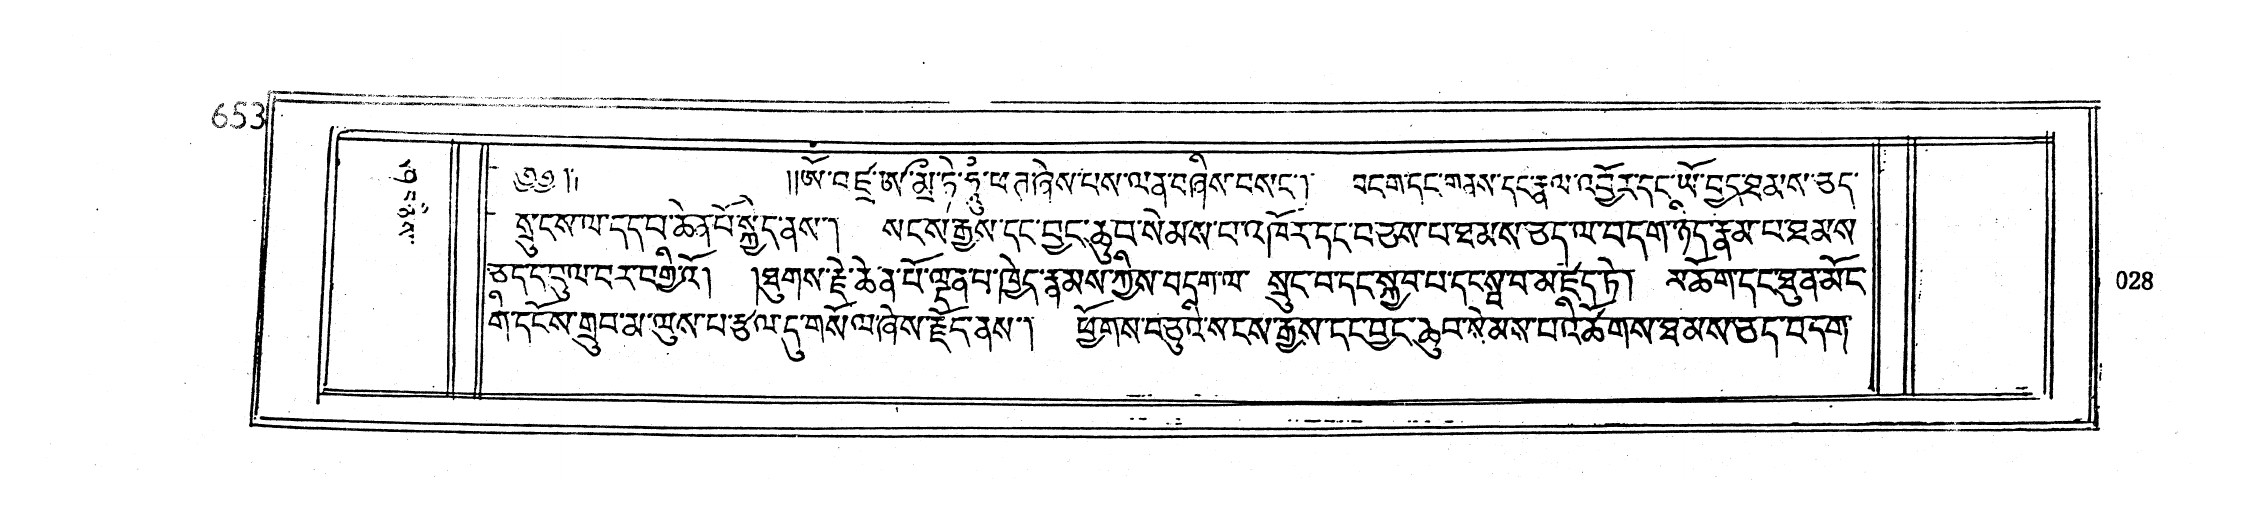 653
༄༅། །ཨོཾ་བཛྲ་ཨ་མྲྀ་ཏེ་ཧཱུྃ་ཕཊ་ཞེས་པས་ལན་བཞིས་བསང་། བདག་དང་གནས་དང་རྣལ་འབྱོར་དང་ཡོ་བྱད་ཐམས་ཅད་
སྲུངས་ལ་དད་པ་ཆེན་པོ་སྐྱེད་ནས་། སངས་རྒྱས་དང་བྱང་ཆུབ་སེམས་པ་འཁོར་དང་བཅས་པ་ཐམས་ཅད་ལ་བདག་ཉིད་རྣམ་པ་ཐམས་
ཅད་དུ་དབུལ་བར་བགྱིའོ། །ཐུགས་རྗེ་ཆེན་པོ་ལྡན་པ་ཁྱེད་རྣམས་ཀྱིས་བདག་ལ་ སྲུང་བ་དང་སྐྱབ་པ་དང་སྦ་བ་མཛོད་ཏེ། མཆོག་དང་ཐུན་མོང་
གི་དངོས་གྲུབ་མ་ལུས་པ་རྩལ་དུ་གསོལ་ཞེས་རྗོད་ནས་། ཕྱོགས་བཅུའི་སངས་རྒྱས་དང་བྱང་ཆུབ་སེམས་པའི་ཚོགས་ཐམས་ཅད་བདག་
028